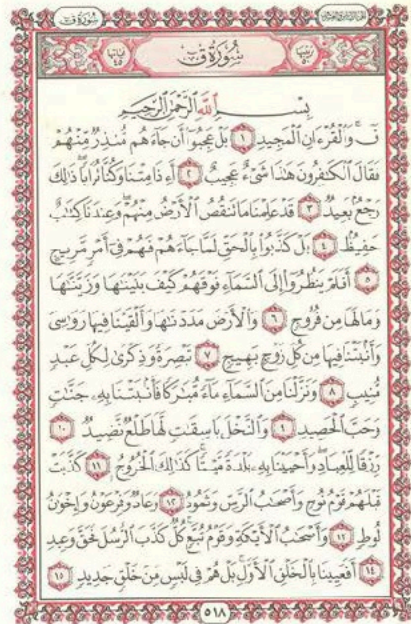 سُورَةُ ق
الجزء السادس والعشرون
ترتيبها ٥٠
سُورَةُ قٓ
آياتها ٤٥
بِسْمِ اللَّهِ الرَّحْمَٰنِ الرَّحِيمِ
قٓ ۚ وَالْقُرْءَانِ الْمَجِيدِ ١ بَلْ عَجِبُوٓا أَن جَآءَهُم مُّنذِرٌ مِّنْهُمْ
فَقَالَ الْكَٰفِرُونَ هَٰذَا شَىْءٌ عَجِيبٌ ٢ أَءِذَا مِتْنَا وَكُنَّا تُرَابًا ۖ ذَٰلِكَ
رَجْعٌۢ بَعِيدٌ ٣ قَدْ عَلِمْنَا مَا تَنقُصُ الْأَرْضُ مِنْهُمْ ۖ وَعِندَنَا كِتَٰبٌ
حَفِيظٌۢ ٤ بَلْ كَذَّبُوا بِالْحَقِّ لَمَّا جَآءَهُمْ فَهُمْ فِىٓ أَمْرٍ مَّرِيجٍ
٥ أَفَلَمْ يَنظُرُوٓا إِلَى السَّمَآءِ فَوْقَهُمْ كَيْفَ بَنَيْنَٰهَا وَزَيَّنَّٰهَا
وَمَا لَهَا مِن فُرُوجٍ ٦ وَالْأَرْضَ مَدَدْنَٰهَا وَأَلْقَيْنَا فِيهَا رَوَٰسِىَ
وَأَنۢبَتْنَا فِيهَا مِن كُلِّ زَوْجٍۭ بَهِيجٍ ٧ تَبْصِرَةً وَذِكْرَىٰ لِكُلِّ عَبْدٍ
مُّنِيبٍ ٨ وَنَزَّلْنَا مِنَ السَّمَآءِ مَآءً مُّبَٰرَكًا فَأَنۢبَتْنَا بِهِۦ جَنَّٰتٍ
وَحَبَّ الْحَصِيدِ ٩ وَالنَّخْلَ بَاسِقَٰتٍ لَّهَا طَلْعٌ نَّضِيدٌ ١٠
رِّزْقًا لِّلْعِبَادِ ۖ وَأَحْيَيْنَا بِهِۦ بَلْدَةً مَّيْتًا ۚ كَذَٰلِكَ الْخُرُوجُ ١١ كَذَّبَتْ
قَبْلَهُمْ قَوْمُ نُوحٍ وَأَصْحَٰبُ الرَّسِّ وَثَمُودُ ١٢ وَعَادٌ وَفِرْعَوْنُ وَإِخْوَٰنُ
لُوطٍ ١٣ وَأَصْحَٰبُ الْأَيْكَةِ وَقَوْمُ تُبَّعٍ ۚ كُلٌّ كَذَّبَ الرُّسُلَ فَحَقَّ وَعِيدِ
١٤ أَفَعَيِينَا بِالْخَلْقِ الْأَوَّلِ ۚ بَلْ هُمْ فِى لَبْسٍ مِّنْ خَلْقٍ جَدِيدٍ ١٥
٥١٨